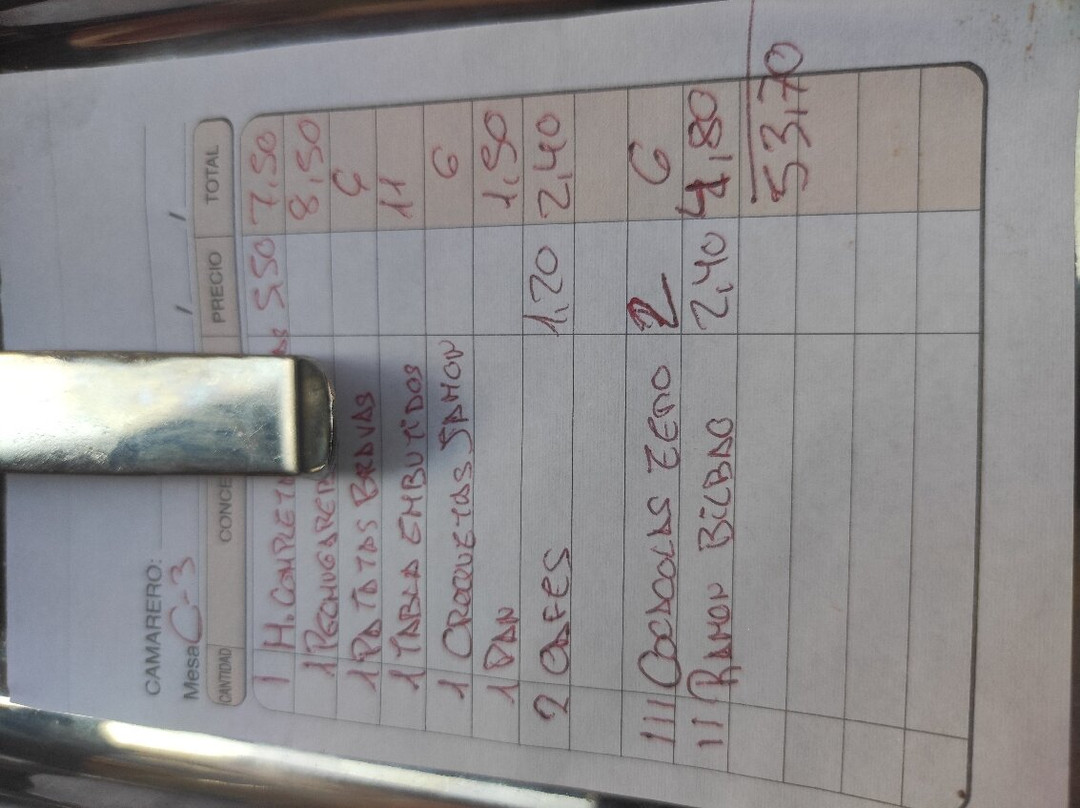 CAMARERO:
Mesa C-3 / /
CANTIDAD CONCE PRECIO TOTAL
1 H. COMPLETA 5,50 7,50
1 PECHUGA 8,50
1 PATATAS BRAVAS 6
1 TABLA EMBUTIDOS 11
1 CROQUETAS JAMON 6
1 PAN 1,50
2 CAFES 1,20 2,40
III COCACOLAS ZERO 2 6
II RAMON BILBAO 2,40 4,80
53,70